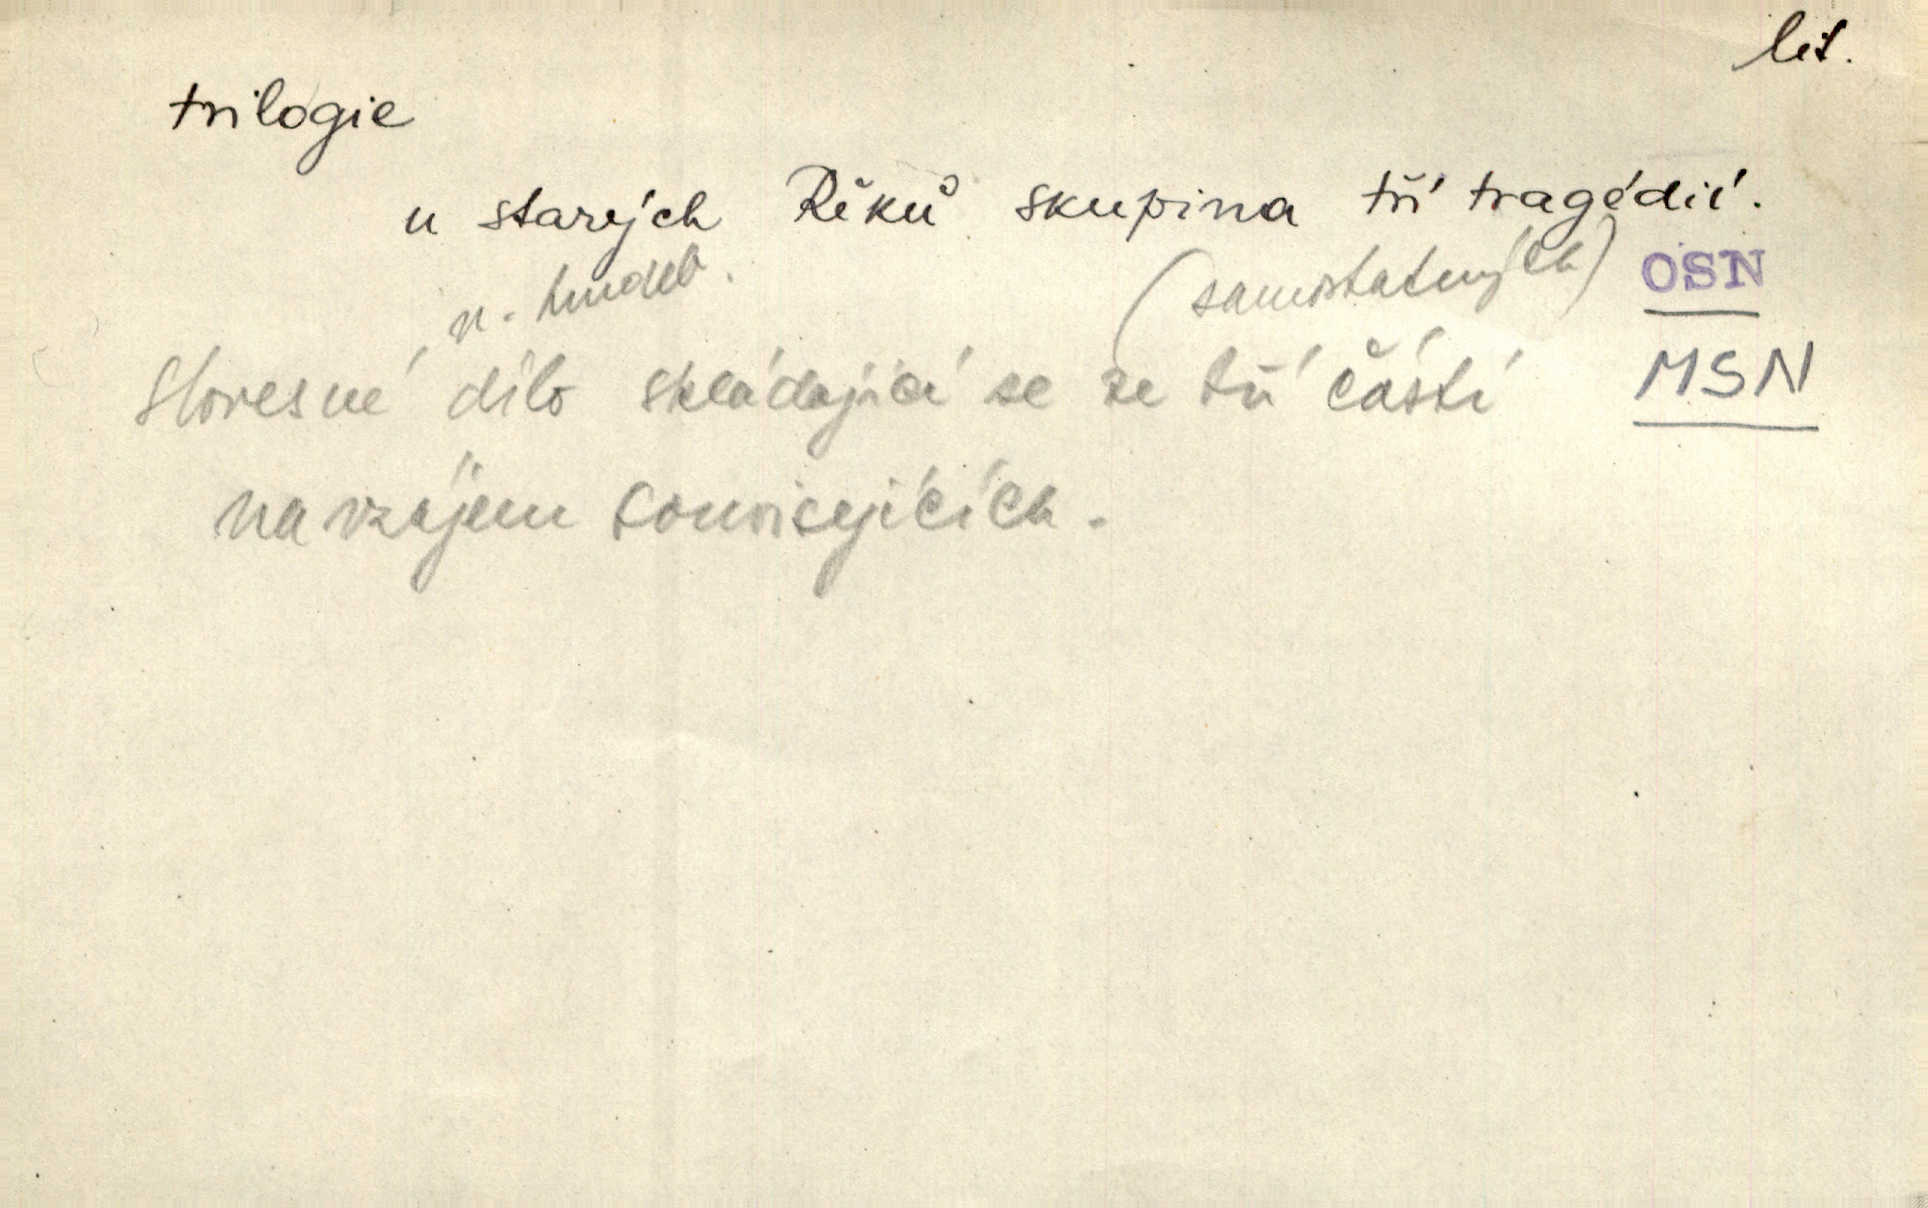 lit.
trilogie
u starých Řeků skupina tří tragédií.
n. hudeb. (samostatných) OSN
Slovesné dílo skládající se ze tří částí MSN
navzájem souvisejících.